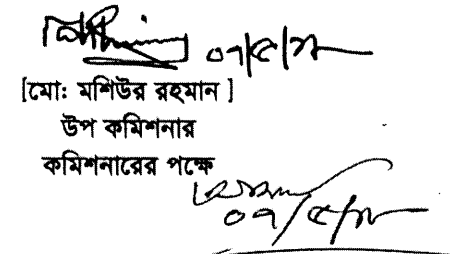 ০৭/৫/
[মোঃ মশিউর রহমান ]
উপ কমিশনার
কমিশনারের পক্ষে
০৭/৫/